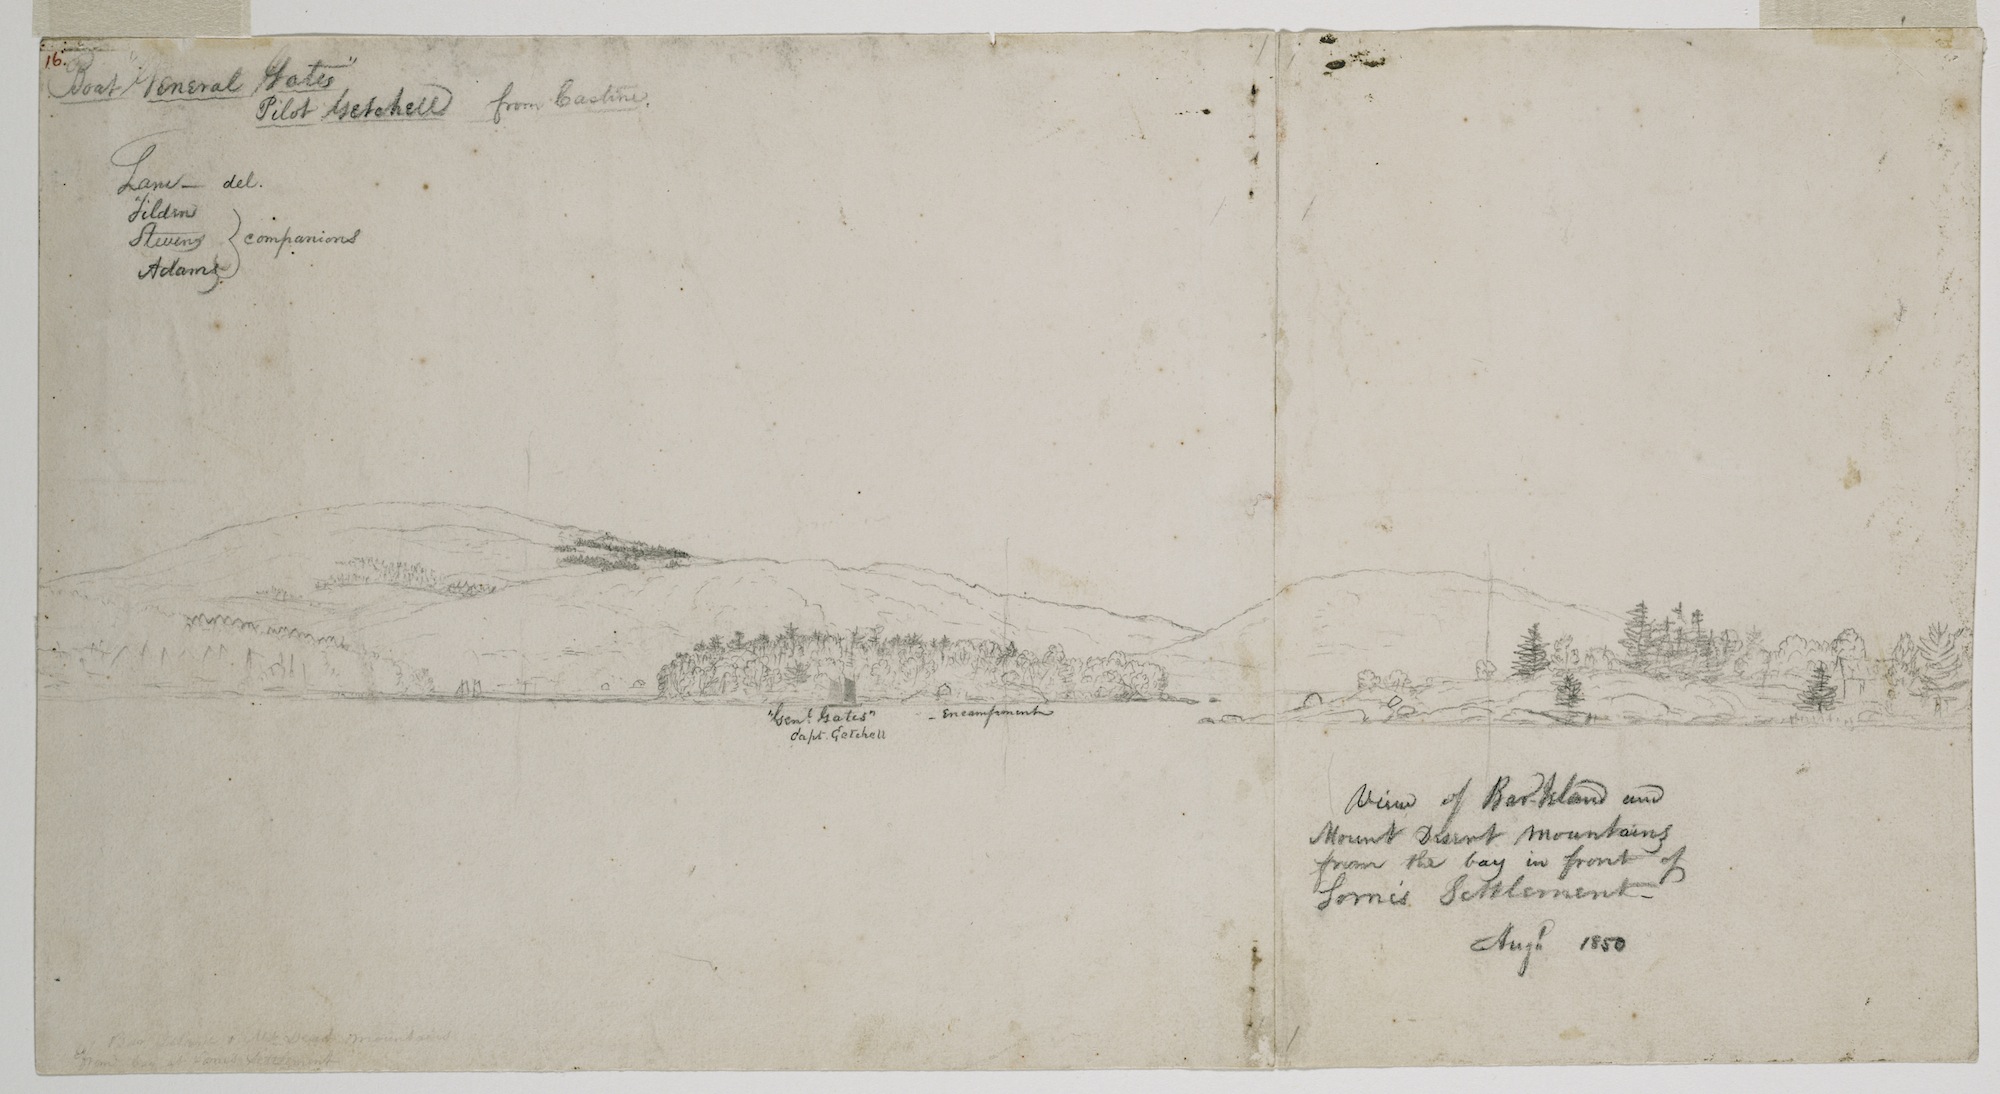 16.
Boat "General Gates"
Pilot Getchell from Castine.
Lane - del.
Tilden
Stevens
Adams
} companions
"Genl. Gates"
Capt. Getchell
- Encampment
View of Bar Island and
Mount Desert Mountains
from the bay in front of
Somes Settlement -
Augt 1850
Bar Island & Mt. Desert Mountains
from bay at Somes Settlement